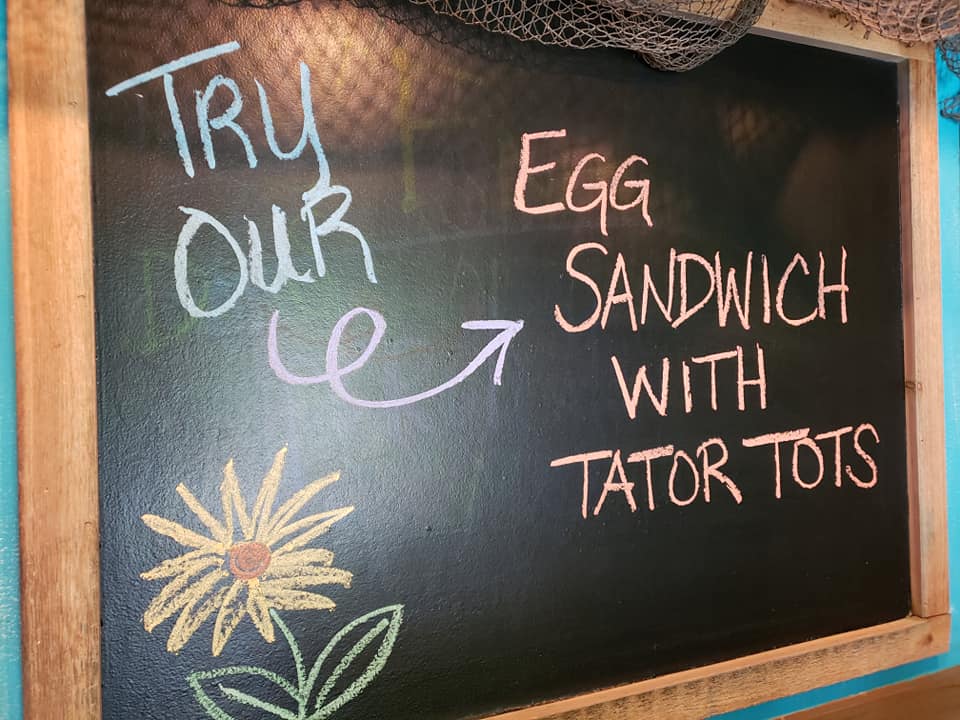 TRY
OUR
EGG
SANDWICH
WITH
TATOR TOTS